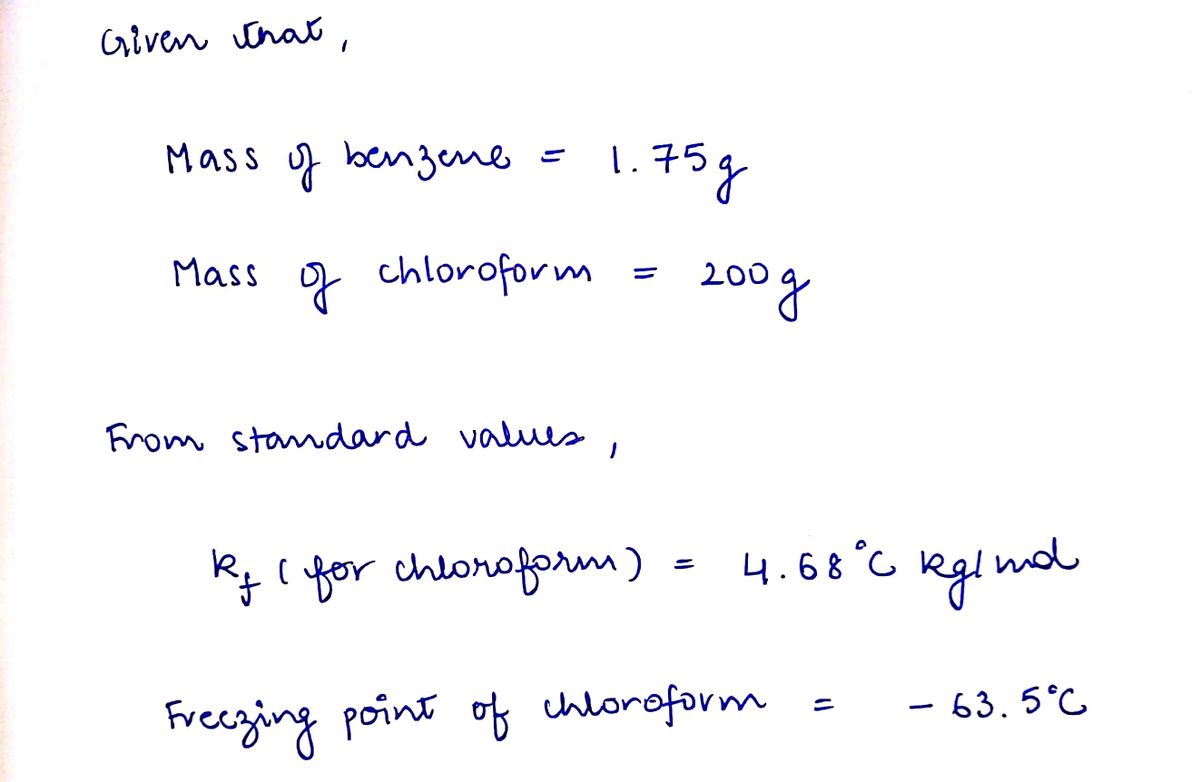 Given that,
Mass of benzene = 1.75g
Mass of chloroform = 200g
From standard values,
kf (for chloroform) = 4.68°C kg/mol
Freezing point of chloroform = - 63.5°C